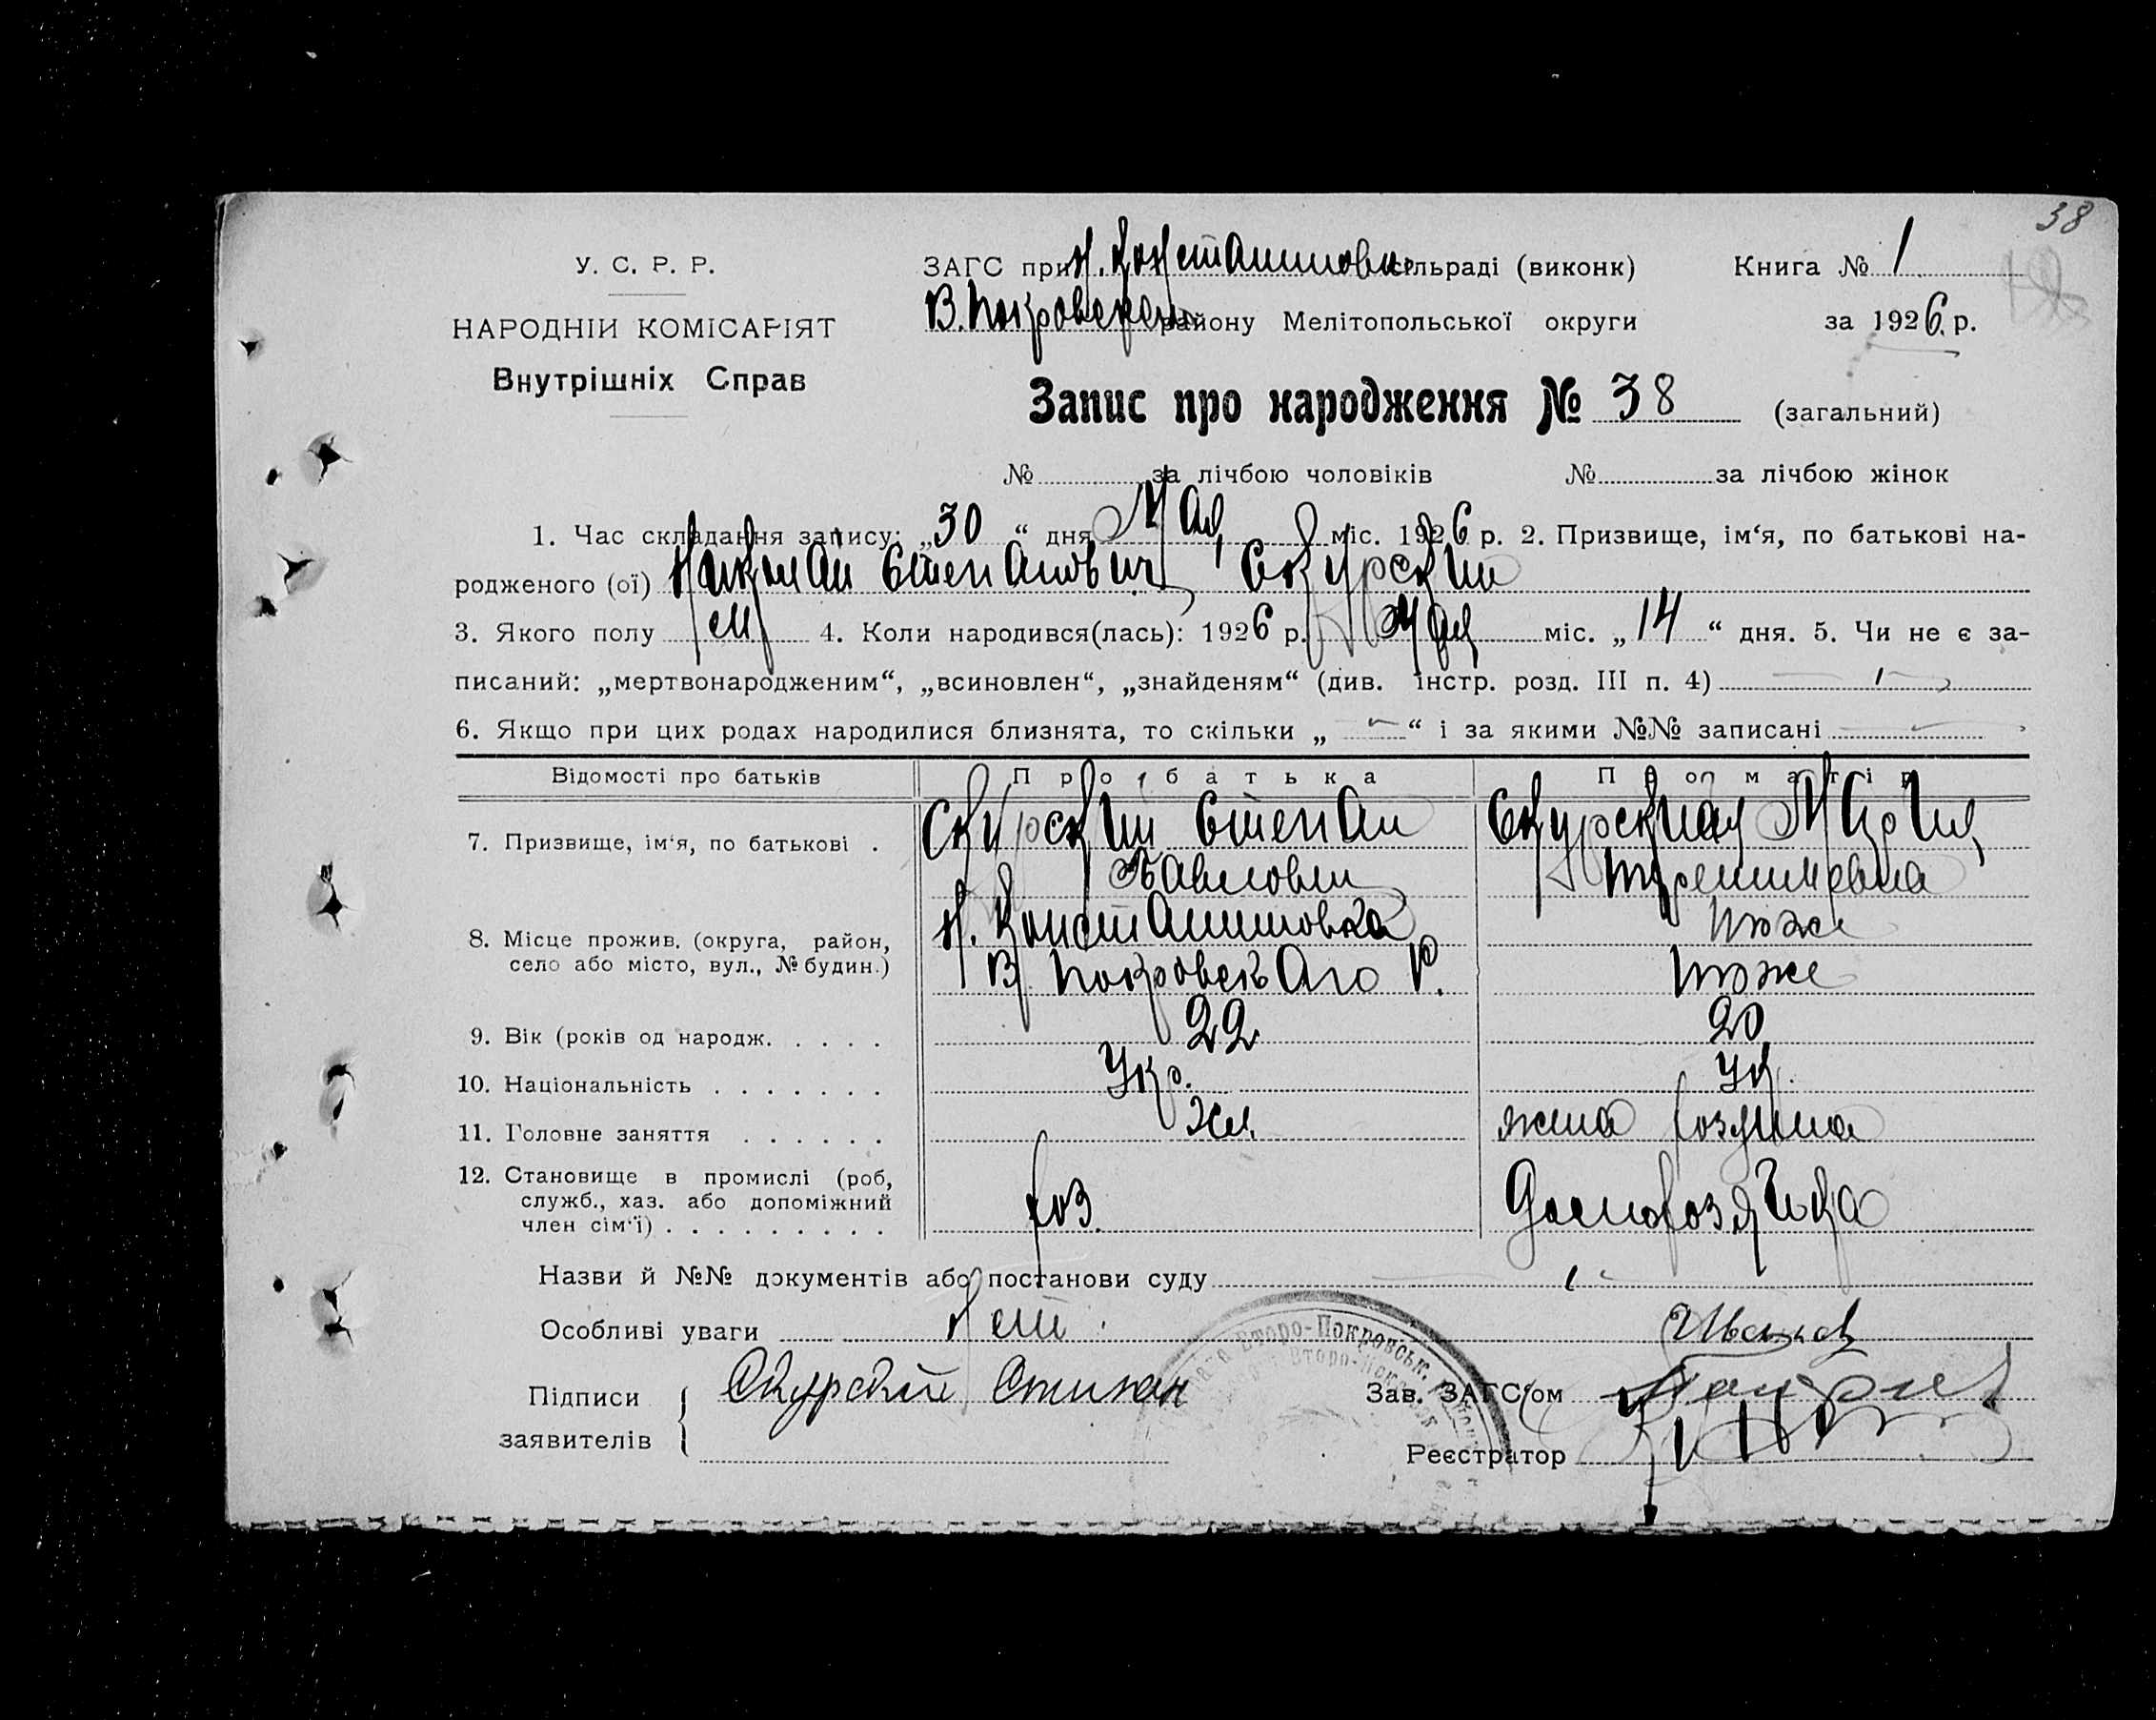 38
У. С. Р. Р.
НАРОДНІЙ КОМІСАРІЯТ
Внутрішніх Справ
ЗАГС при Н. Константиновк. сільраді (виконк)
В. Покровском району Мелітопольської округи
Книга № 1
за 1926 р.
Запис про народження № 38 (загальний)
№ за лічбою чоловіків № за лічбою жінок
1. Час складання запису: „30“ дня Мая міс. 1926 р. 2. Призвище, ім‘я, по батькові на-
родженого (ої) Николай Степанович Скурский
3. Якого полу м 4. Коли народився(лась): 1926 р. Мая міс. „14“ дня. 5. Чи не є за-
писаний: „мертвонародженим“, „всиновлен“, „знайденям“ (див. інстр. розд. III п. 4)
6. Якщо при цих родах народилися близнята, то скільки „ “ і за якими №№ записані
Відомості про батьків Про батька Про матір
7. Призвище, ім‘я, по батькові . Скурский Степан Скурская Мария
Павлович
8. Місце прожив. (округа, район, Н. Константиновка тоже
село або місто, вул., № будин.) В Покровскаго Р. тоже
9. Вік (років од народж. . . . . 22 20
10. Національність . . . . . . . Укр. Ук.
11. Головне заняття . . . . . . Хл. жена хозяина
12. Становище в промислі (роб,
служб., хаз. або допоміжний
член сім‘ї) . . . . . . . . . хоз. домохозяйка
Назви й №№ документів або постанови суду
Особливі уваги нет
Підписи Скурский Степан
заявителів
Зав. ЗАГС‘ом
Реєстратор
Второ-Покровськ.